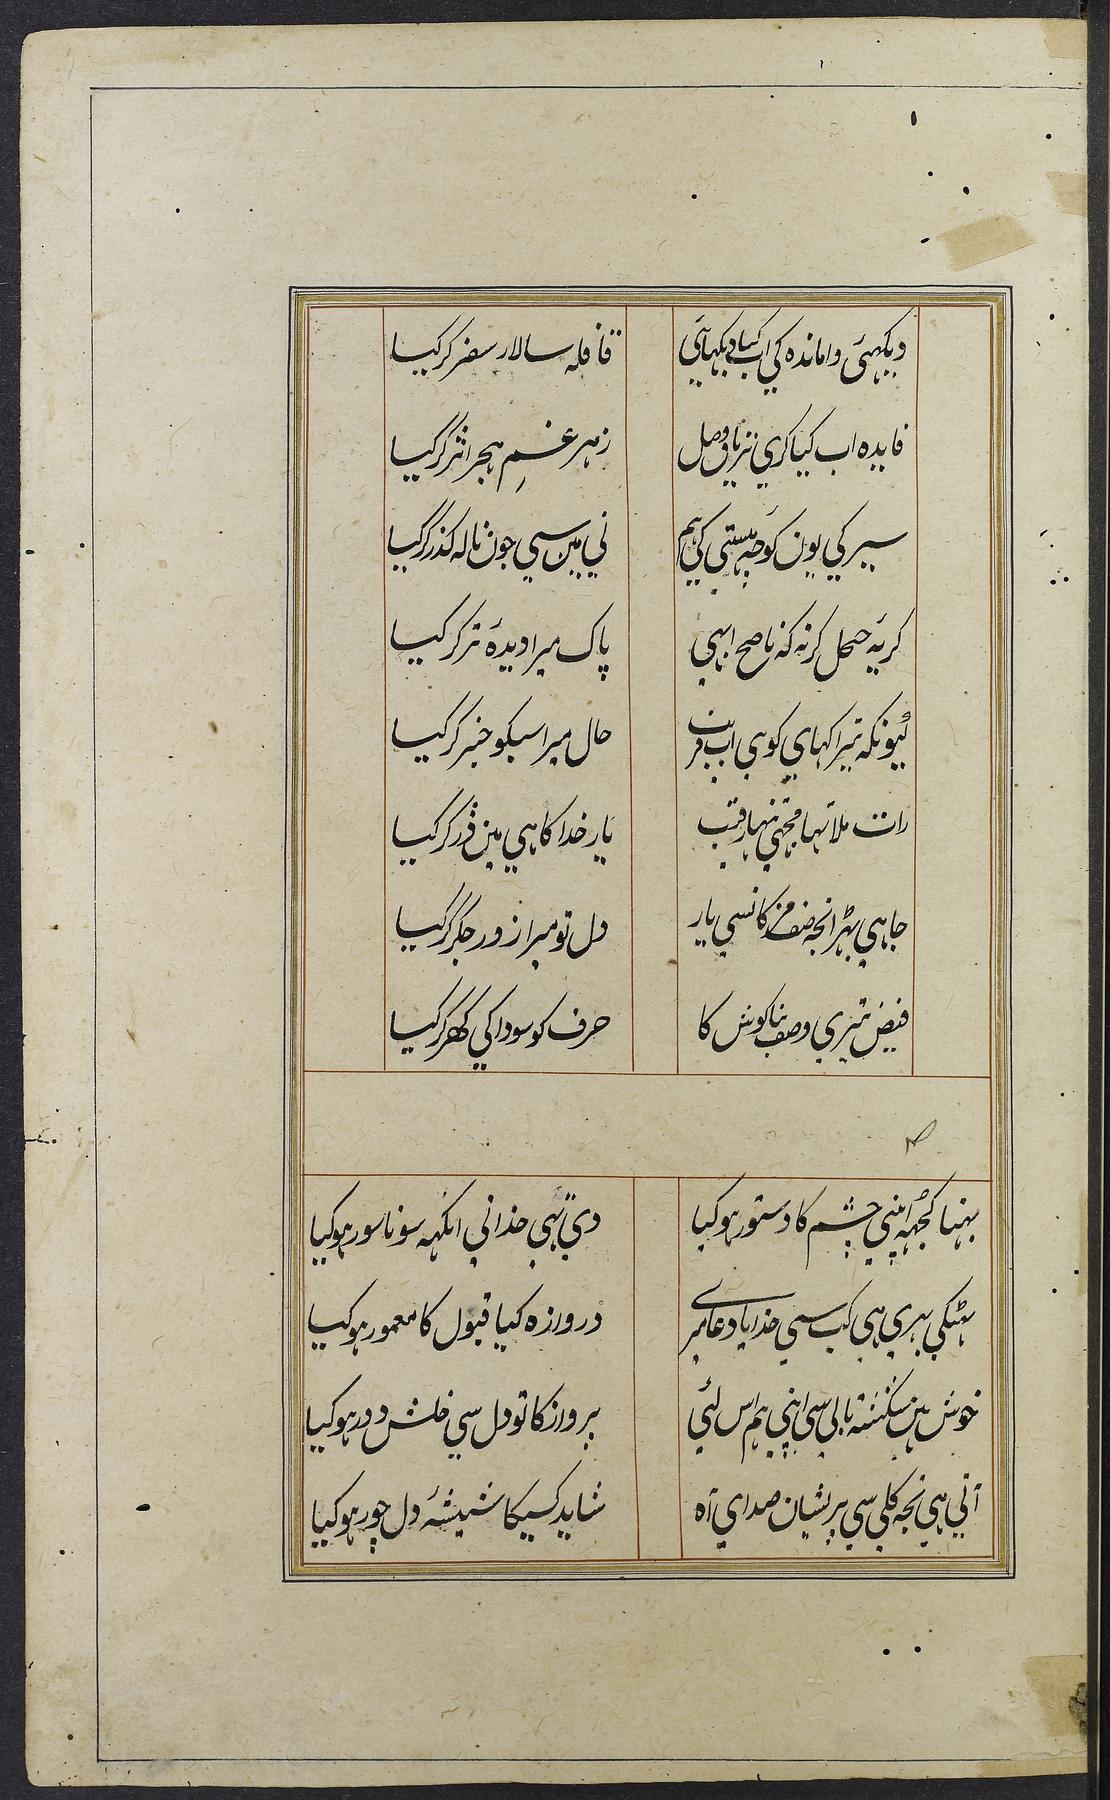 دیکهئی واماندہ کی اب کیا دیکهاہئی
قافلہ سالار سفر کر کیا
فایدہ اب کیا کری تریاق وصل
زہر غمِ ہجر اثر کر کیا
سیر کی یون کوچہٴ ہستی کی ہم
نی مین سی جون نالہ کذر کر کیا
کریہٴ کرنہ کہ ناصح ابہی
پاک میرا دیدہٴ تر کر کیا
کیونکہ تیرا کہای کوہی اب
حال میرا سبکو خبر کر کیا
رات ملا تہا مجہی تنہا رقیب
یار خدا کا ہی مین ڈر کر کیا
جاہی بہڑا تجہ صف مژکانسی یار
دل تو میرا زور جکر کر کیا
فیض تیری وصف بناکوش کا
حرف کو سودا کی کهر کر کیا
بہنا کچہہ اپنی چشم کا دستور ہوکیا
دی تہی خدانی انکہہ سو ناسور ہوکیا
بہٹکی پہری ہی کب سی خدایا دعا میری
دروازہ کیا قبول کا معمور ہوکیا
خوش ہین شکستہ بالی سی اپنی ہم اس لئی
پرواز کا تو دل سی خلش دور ہوکیا
آتی ہی تجہ کلی سی پریشان صدای آہ
شاید کسیکا شیشہٴ دل چور ہوکیا